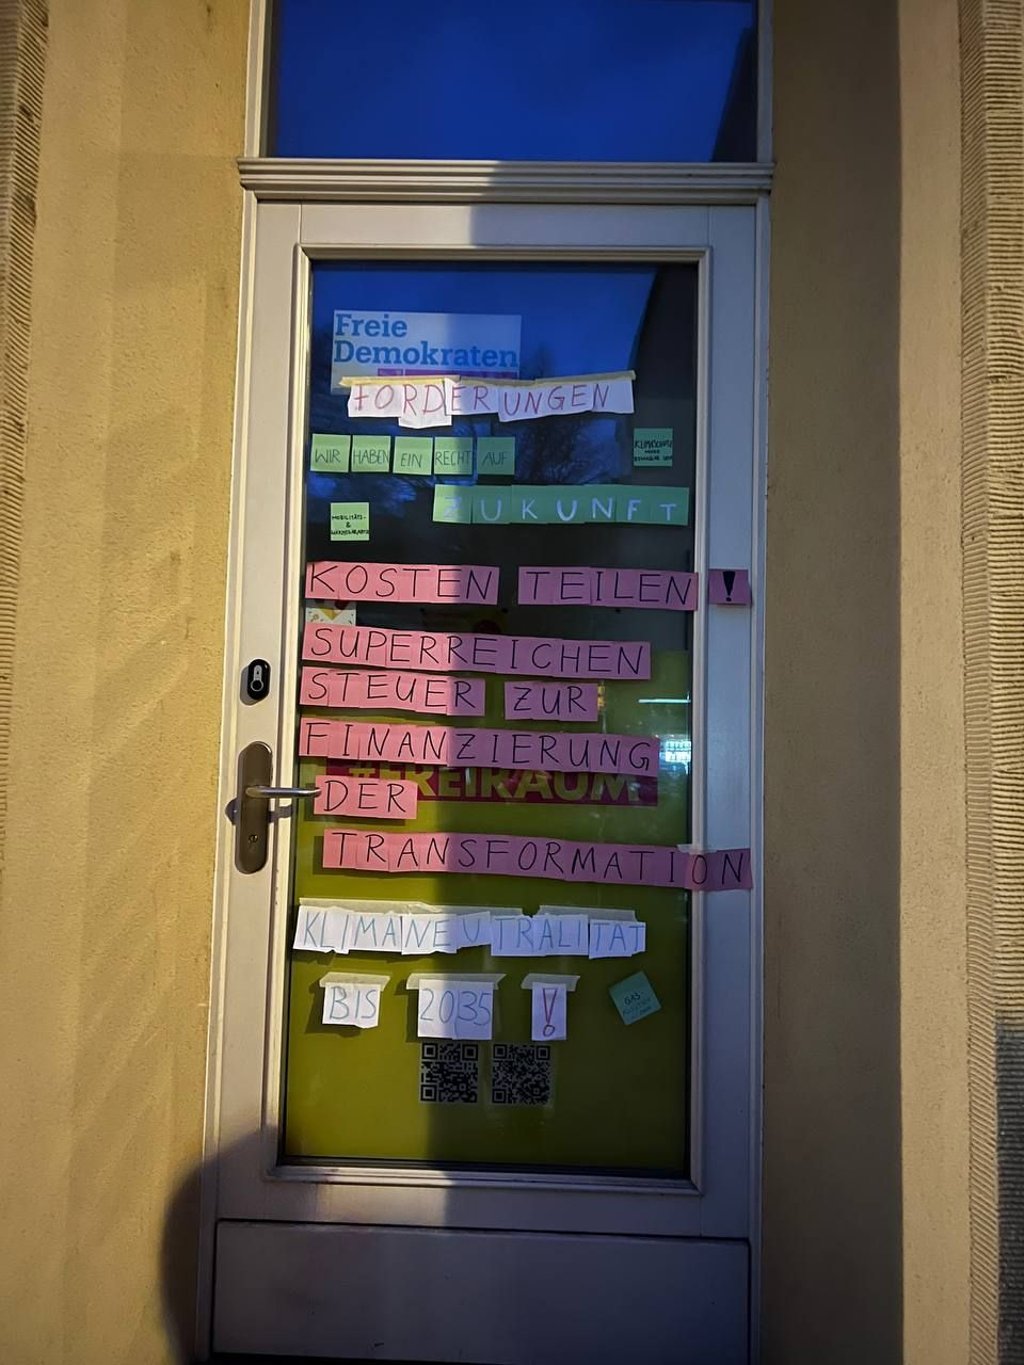 Freie
Demokraten
FORDERUNGEN
WIR HABEN EIN RECHT AUF
ZUKUNFT
MOBILITÄTS-
&
KOSTEN TEILEN !
SUPERREICHEN
STEUER ZUR
FINANZIERUNG
#FREIRAUM
DER
TRANSFORMATION
KLIMANEUTRALITÄT
BIS 2035 !
GAS